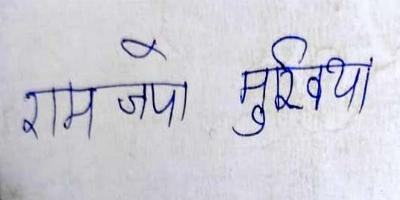 राम जपो मुखिया